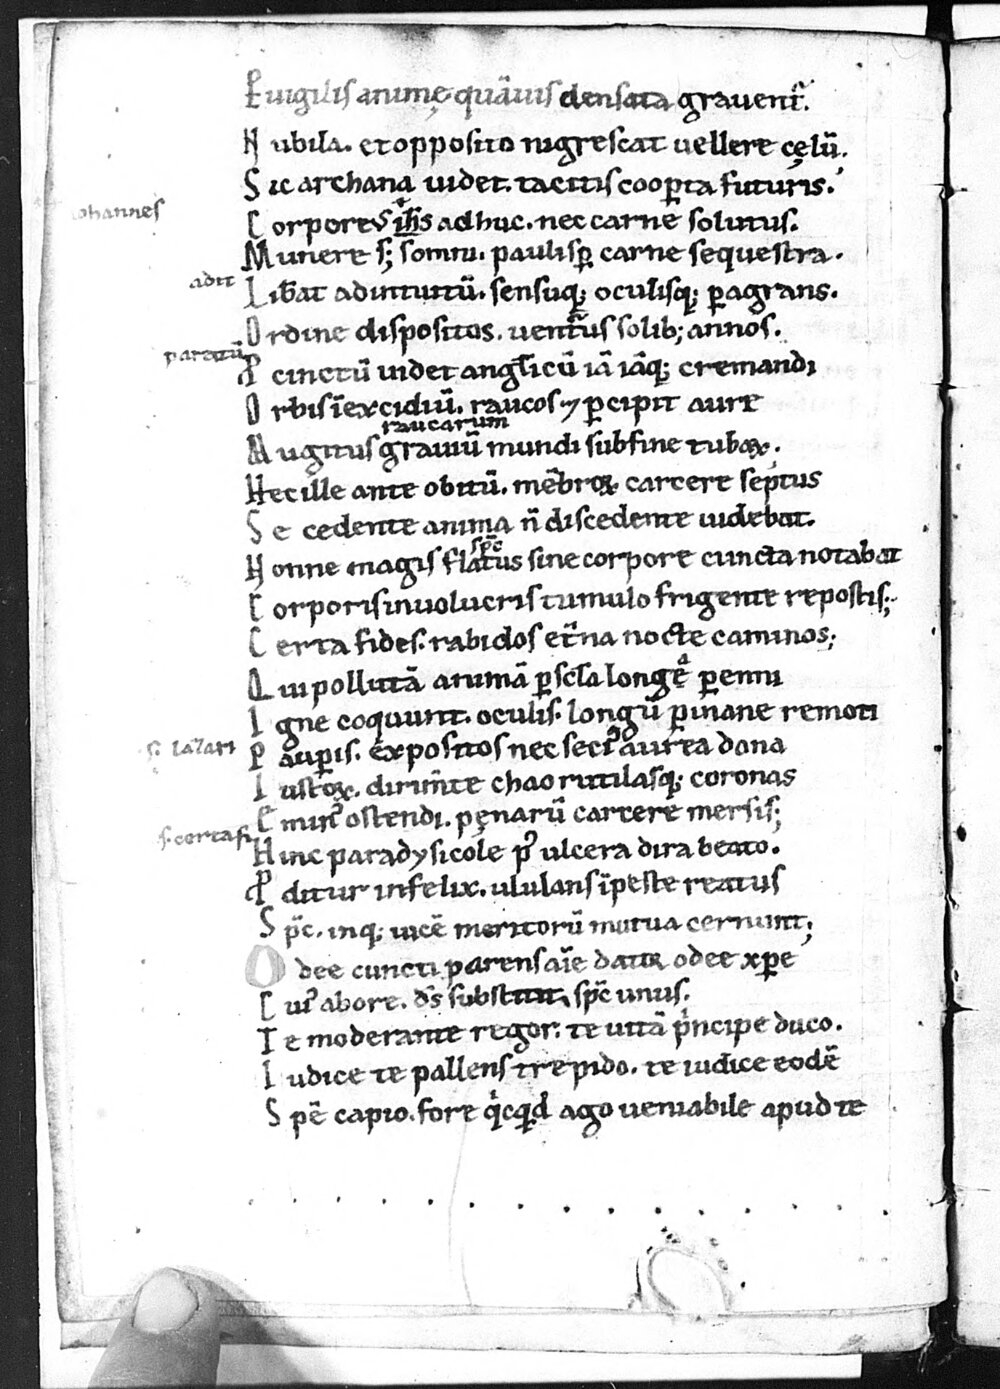 Euigilis animę quāuis densata grauent᷑.
Nubila. et opposito nigrescat uellere cęlū.
Sic archana uidet. tacitis coop̄ta futuris.
iohannes
Corporeꝰ ih̄s adhuc. nec carne solutus.
Munere s; somni. paulisp̄ carne sequestra.
adit
Lib̄at ad intuitū. sensuq; oculisq; p̄agrans.
Ordine dispositos. uent᷑us solib; annos.
paratū
P̄cinctū uidet anglicū iā iāq; cremandi
Orbis ī excidiū. raucos ⁊ p̄cipit aure
raucarum
Mugitus grauiū mundi sub fine tubaꝝ.
Hec ille ante obitū. mēbroꝝ carcere septus
Se cedente anima ñ discedente uidebat.
sp̄c
Nonne magis flatus sine corpore cuncta notabat
Corporis inuolucris tumulo frigente repostis;
Certa fides. rabidos et̄na nocte caminos;
Qui pollutā animā p̄ scl̄a longę p̄enni
Igne coquunt. oculis. longū p̄ inane remoti
s. lazari
Paup̄is. expositos nec seciꝰ aurea dona
Iustoꝝ. dirim̄te chao rutilasq; coronas
Eminꝰ ostendi. pęnarū carcere mersis;
s. certa fi
Hinc paradysicole pꝰ ulcera dira beato.
P̄ditur infelix. ululans ī peste reatus
Sp̄c. inq; uicē meritorū mutua cernunt;
O dee cuncti parens aīe dator o dee xp̄e
Cuiꝰ ab ore. d̄s subsitit, sp̄c unus.
Te moderante regor. te uitā pͥncipe duco.
Iudice te pallens trepido. te iudice eodē
Spē capio. fore qͥcqͥd ago ueniabile apud te